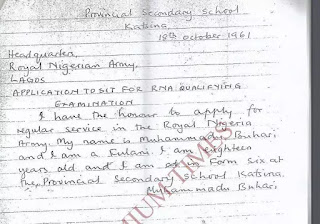 Provincial Secondary School
Katsina.
18th October 1961
Headquarter,
Royal Nigerian Army,
LAGOS
APPLICATION TO SIT FOR RNA QUALIFYING
EXAMINATION
I have the honour to apply for
regular service in the Royal Nigeria
Army. My name is Muhammadu Buhari
and I am a Fulani. I am eighteen
years old and I am at in Form six at
the Provincial Secondary School Katsina.
Muhammadu Buhari
IUM TIMES